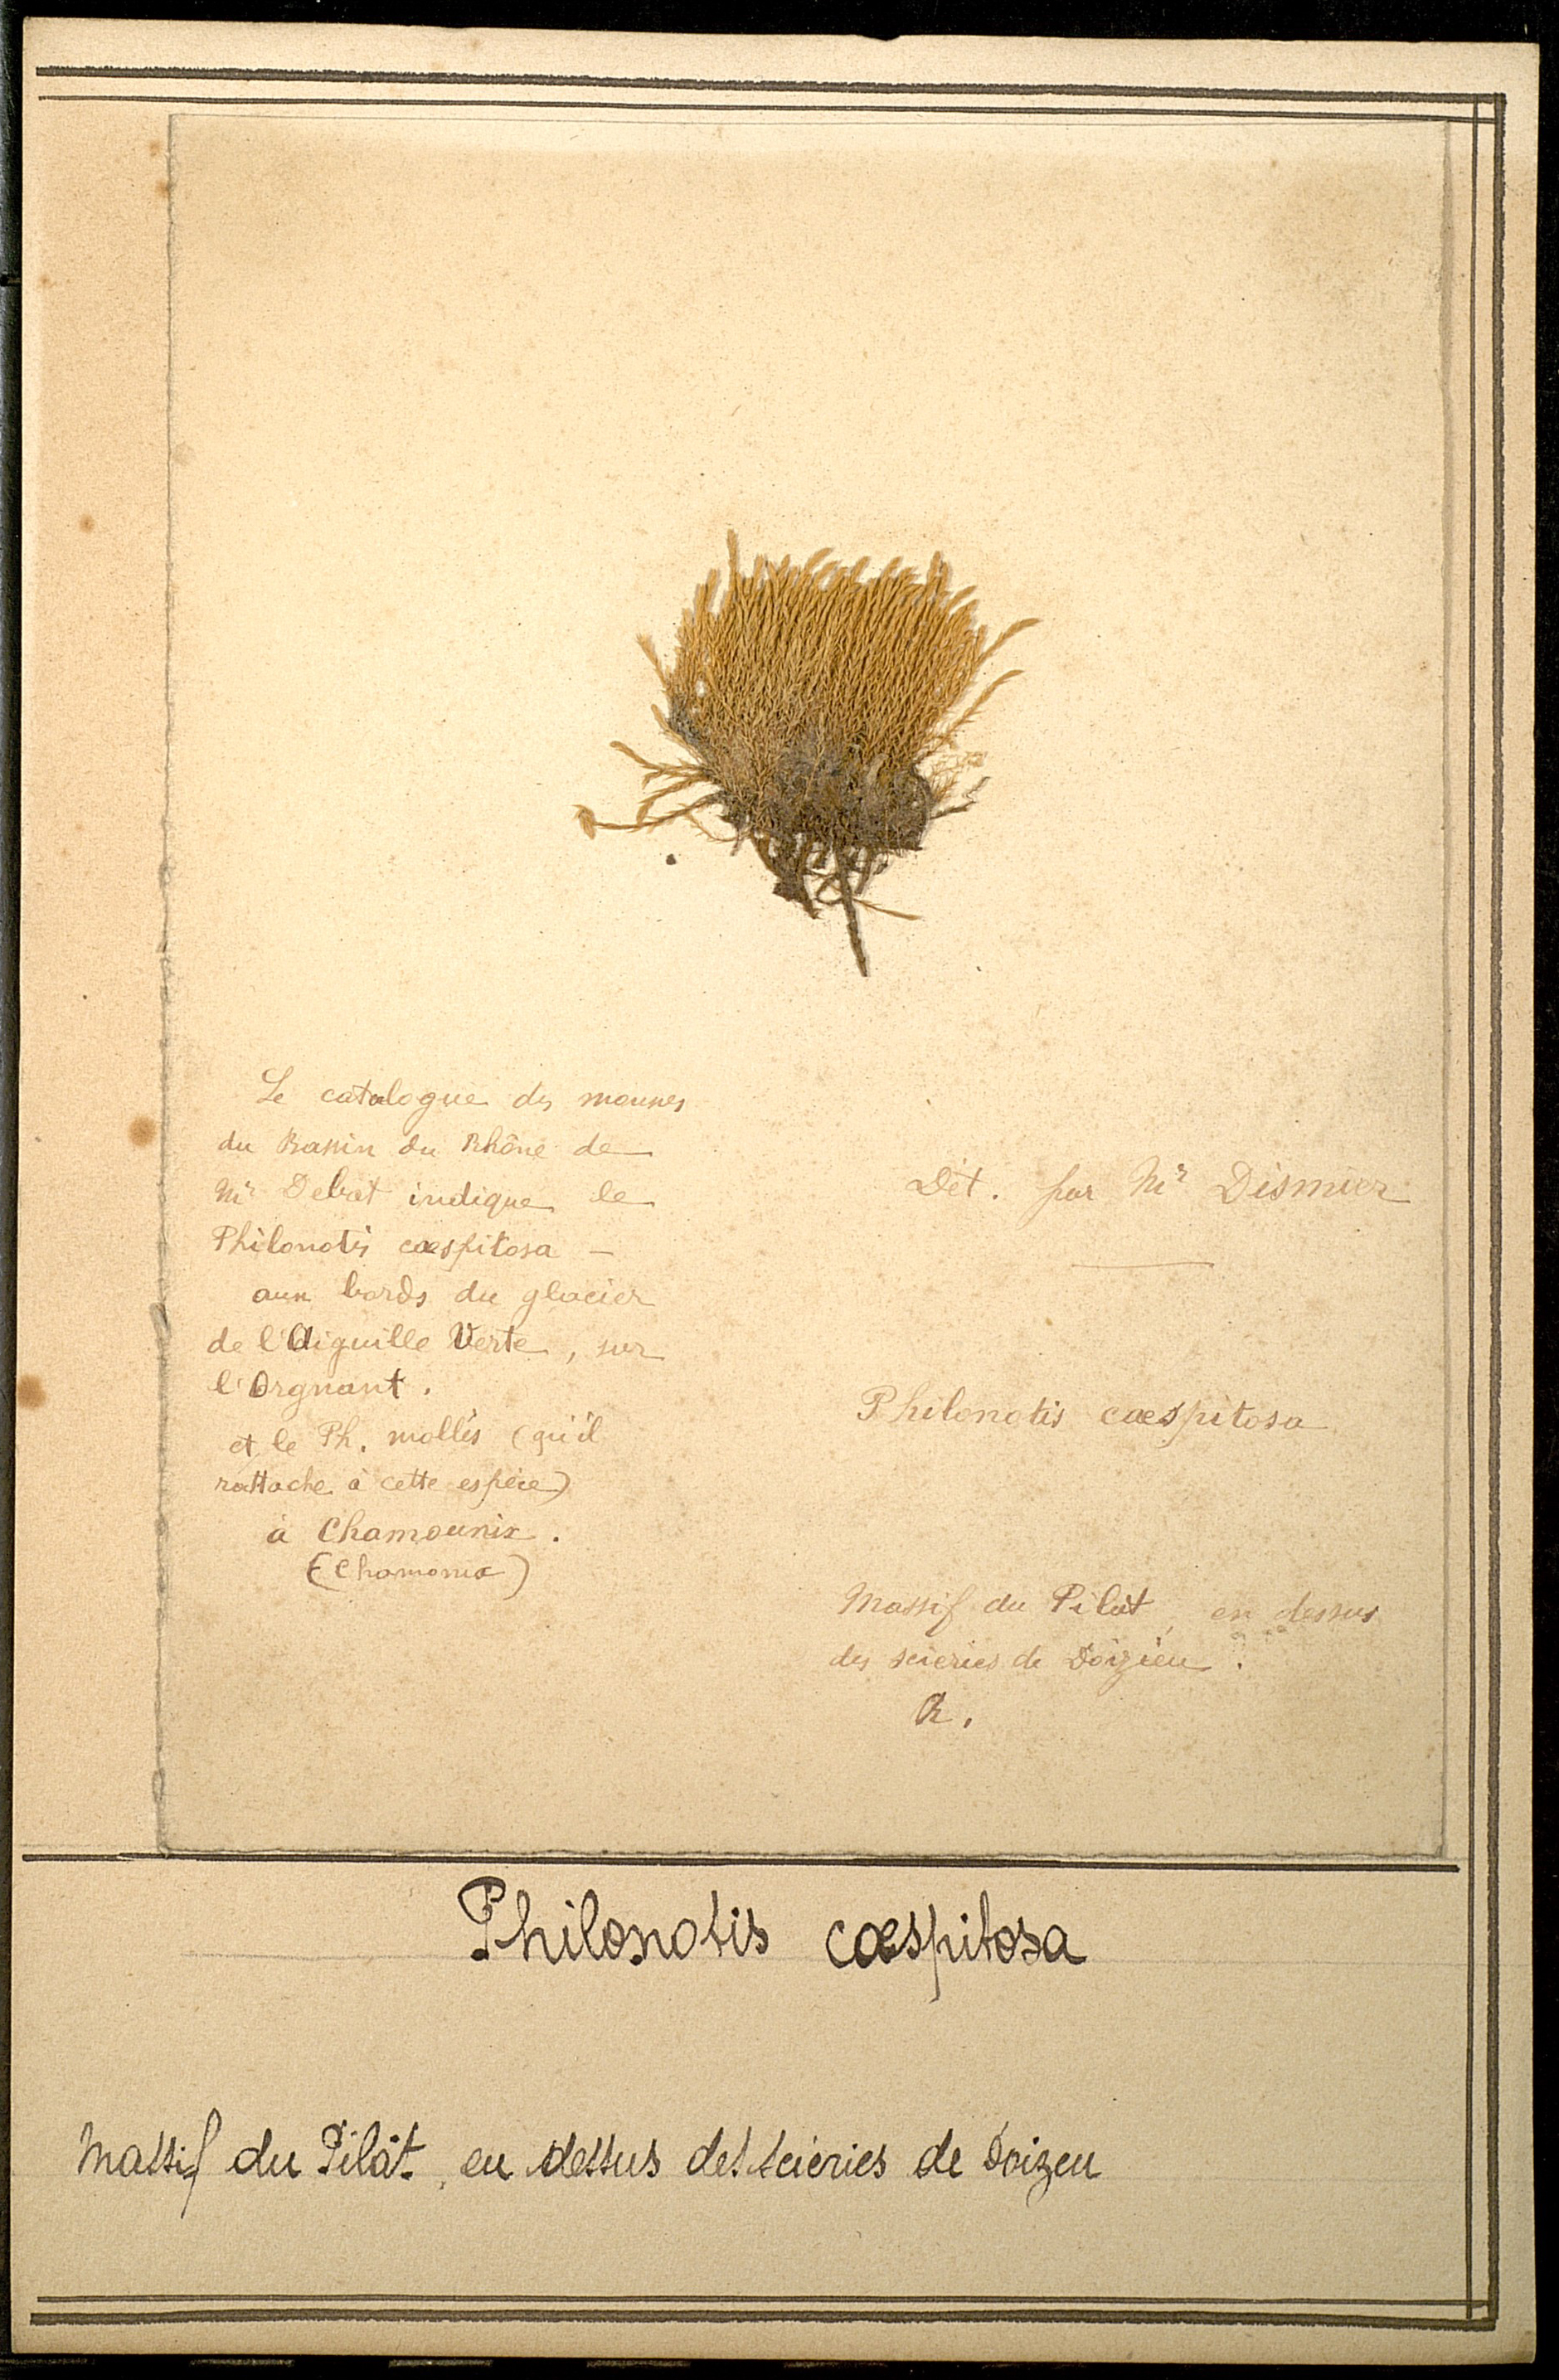 Le catalogue des mousses
du Bassin du Rhône de
Mr Debat indique le
Philonotis cæspitosa –
aux bords du glacier
de l'Aiguille Verte, sur
l'Orgnant.
et le Ph. mollis (qu'il
rattache à cette espèce)
à Chamounix.
(Chamonix)
Dét. par Mr Dismier
Philonotis cæspitosa
Massif du Pilat, en dessus
des scieries de Doizieu.
R.
Philonotis cæspitosa
Massif du Pilât, en dessus des scieries de Doizeu